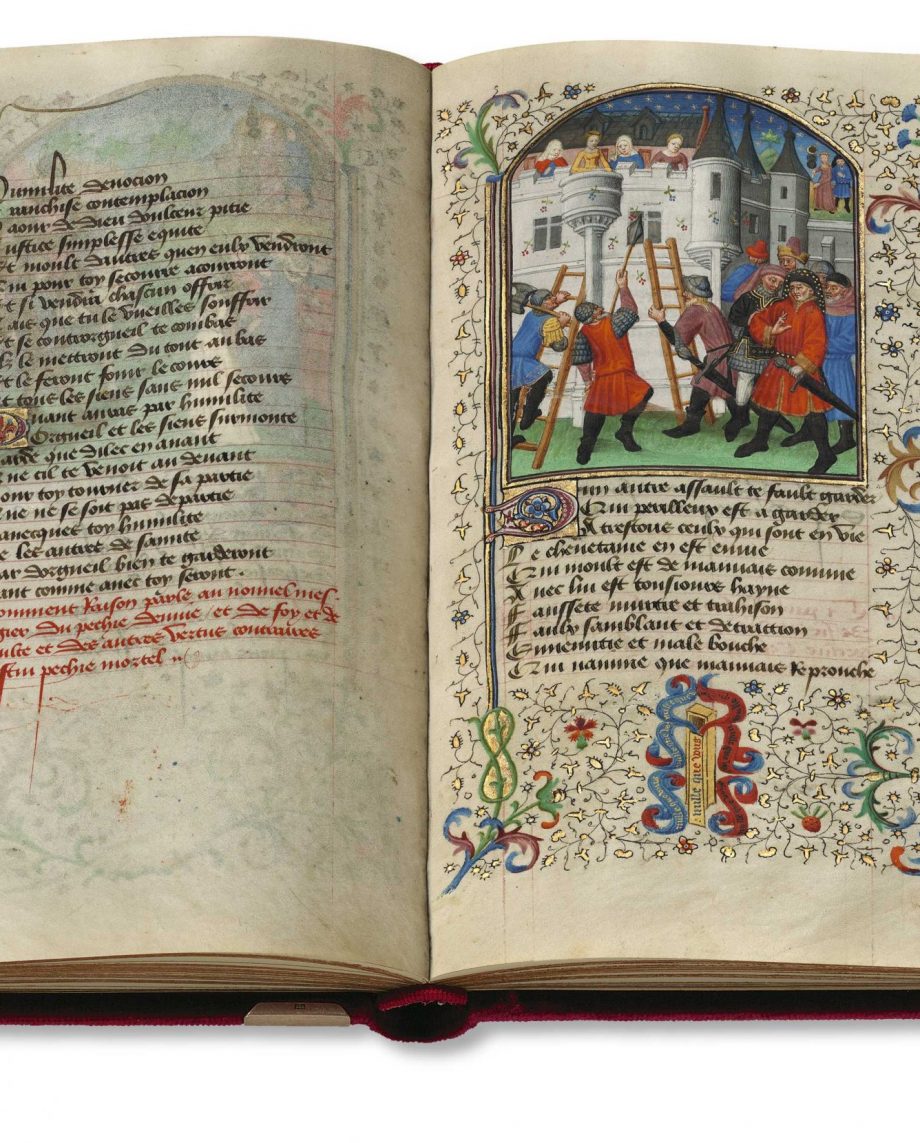 umilite devocion
ranchise contemplacion
aour de dieu doulceur pitie
ustice simplesse equite
t moult dautres quen culx vendront
ui pour toy secourre acourront
t si vendra chascun offrir
ais que tu le vueilles souffrir
t se controrgueil te combas
Ilz le mettront du tout au bas
t le feront fouir le cours
t tous les siens sans nul secours
Quant auras par humilite
Orgueil et les siens surmonte
arde que dilec en avant
e cil te venoit au devant
our toy tourner de sa partie
ue ne se soit pas departie
avecques toy humilite
e les autres de sainite
ar dorgueil bien te garderont
ant comme avec toy seront
omment Raison parle au nouvel mes
gier du peche denvie / et de foy et de
ulte et des autres vertus contraires
estui pechie mortel
Dun autre assault te fault garder
Qui perilleux est a garder
A trestous ceulx qui sont en vie
Le chevetaine en est envie
Qui moult est de mauvais commune
Avec lui est tousiours hayne
Faussete murtre et trahison
Faulx samblant et detraction
Ginemitie et male bouche
Qui namme que mauvais Reprouche
nulle que vous